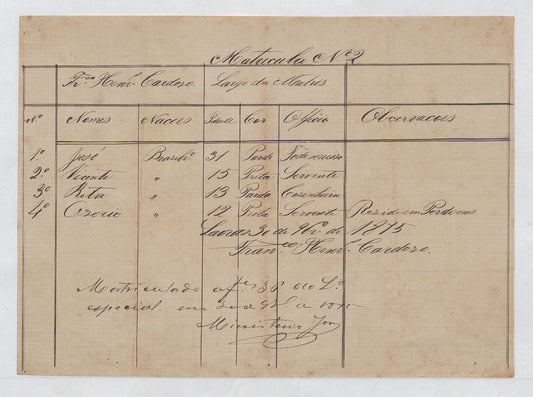 Matricula Nº 2
Franco Henrs Cardozo Largo da Matris
Nº Nomes Nacoes Idade Cor Officio Observacoes
1º José Brasilº 31 Pardo
2º Vicente " 15 Preta Servente
3º Rita " 13 Parda Cosinheira
4º Ozorio " 12 Preta Servente Rezide em Perdoens
Lavras 30 de 9bro de 1875
Franco Henrs Cardozo.
Matriculado a fs 38 do Lº
especial em